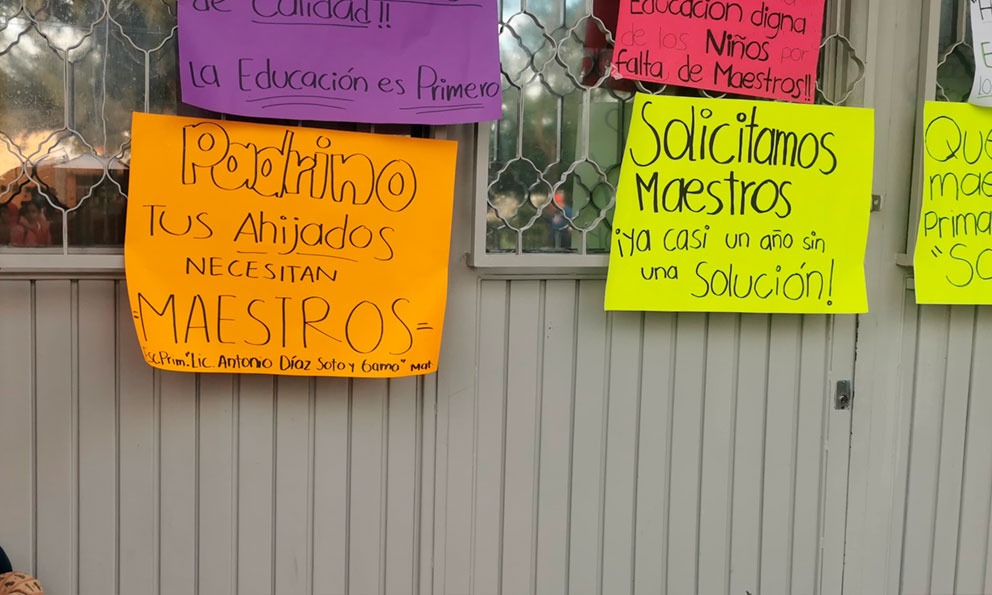 de Calidad!!
La Educación es Primero
Educación digna
de los Niños por
falta de Maestros!!
Padrino
Tus Ahijados
necesitan
=MAESTROS=
Esc. Prim. "Lic. Antonio Díaz Soto y Gama" Mat
Solicitamos
Maestros
¡ya casi un año sin
una Solución!
Que
mae
Prima
"SO